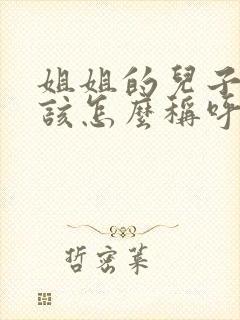 姐姐的兒子
該怎麼稱呼
哲密萊